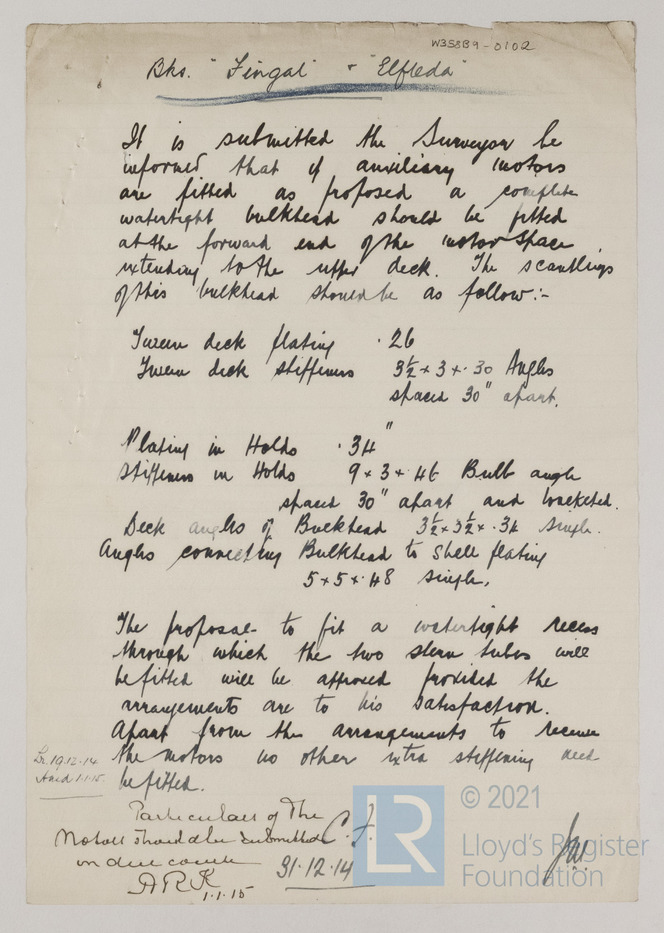 W358B9-0102
Bks. "Fingal" & "Elfleda"
It is submitted the Surveyor be
informed that if auxiliary motors
are fitted as proposed a complete
watertight bulkhead should be fitted
at the forward end of the motor space
extending to the upper deck. The scantlings
of this bulkhead should be as follow:-
Tween deck plating .26
Tween deck stiffeners 3½ × 3 × .30 Angles
spaced 30" apart.
Plating in Holds .34"
Stiffeners in Holds 9 × 3 × .46 Bulb angle
spaced 30" apart and bracketed.
Deck angles of Bulkhead 3½ × 3½ × .34 single.
Angles connecting Bulkhead to shell plating
5 × 5 × .48 single.
The proposal to fit a watertight recess
through which the two stern tubes will
be fitted will be approved provided the
arrangements are to his satisfaction.
Apart from the arrangements to receive
the motors no other extra stiffening need
be fitted.
19.12.14
1.1.15
Particulars of the
Motors should be submitted
in due course
ARK
1.1.15
C.F.
31.12.14
LR
© 2021
Lloyd's Register
Foundation